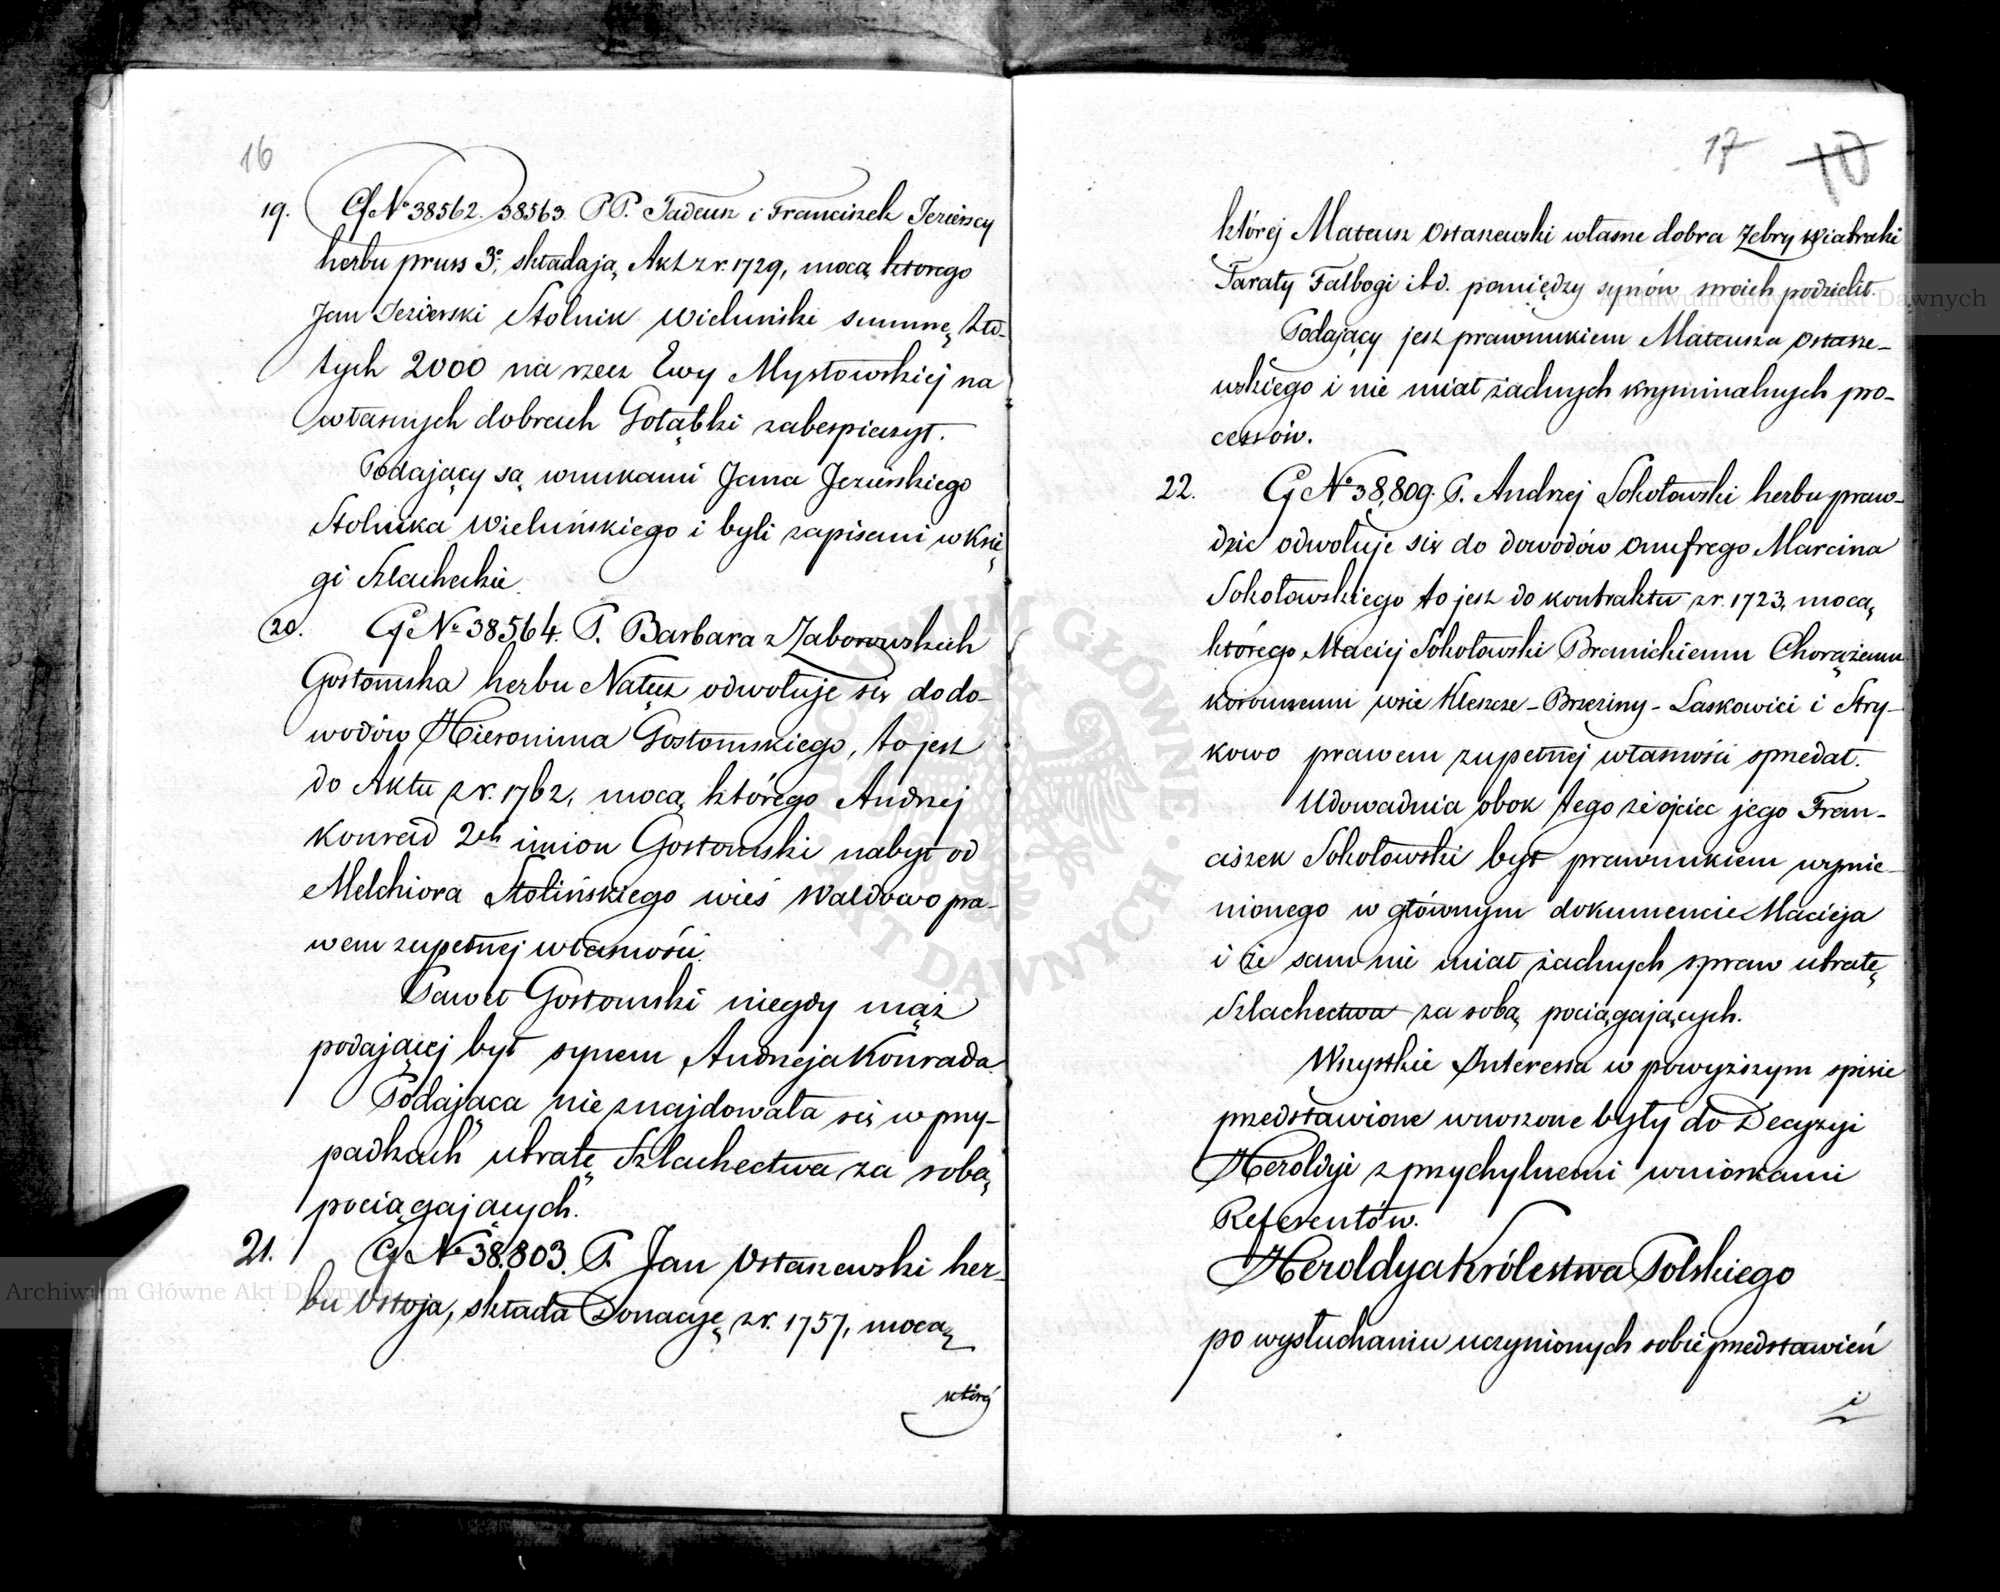 16
19. G№ 38562. 38563. PP. Tadeusz i Franciszek Jezierscy
herbu pruss 3º, składają Akt z r. 1729, mocą którego
Jan Jezierski Stolnik Wieluński summę Zło-
tych 2000 na rzecz Ewy Mystowskiej na
własnych dobrach Gołąbki zabespieczył.
Podający są wnukami Jana Jezierskiego
Stolnika Wieluńskiego i byli zapisani w Księ
gi Szlacheckie.
20. G№ 38564. P. Barbara z Zaborowskich
Gostomska herbu Nałęcz odwołuje się do do-
wodów Hieronima Gostomskiego, to jest
do Aktu z r. 1762, mocą którego Andrzej
Konrad 2ch imion Gostomski nabył od
Melchiora Stolińskiego wieś Waldowo pra-
wem zupełnej własności.
Paweł Gostomski niegdy mąż
podającej był synem Andrzeja Konrada.
Podająca nie znajdowała się w przy-
padkach utratę Szlachectwa za sobą
pociągających.
21. G№ 38.803. P. Jan Ostaszewski her-
bu Ostoja, składa Donacyę z r. 1757, mocą
której
17 10
której Mateusz Ostaszewski własne dobra Zebry Wiatraki
Faraty Falbogi itd. pomiędzy synów swoich podzielił.
Podający jest prawnukiem Mateusza Ostasze-
wskiego i nie miał żadnych kryminalnych pro-
cessów.
22. G№ 38,809. P. Andrzej Sokołowski herbu praw-
dzic odwołuje się do dowodów Onufrego Marcina
Sokołowskiego to jest do kontraktu z r. 1723, mocą
którego Maciej Sokołowski Branickiemu Chorążemu
koronnemu wsie Kleszcze-Brzeziny-Laskowici i Stry-
kowo prawem zupełnej własności sprzedał.
Udowadnia obok tego że ojciec jego Fran-
ciszek Sokołowski był prawnukiem wymie-
nionego w głównym dokumencie Macieja
i że sam nie miał żadnych spraw utratę
Szlachectwa za sobą pociągających.
Wszystkie Interessa w powyższym spisie
przedstawione wnoszone były do Decyzyi
Heroldyi z przychylnemi wnioskami
Referentów.
Heroldya Królestwa Polskiego
po wysłuchaniu uczynionych sobie przedstawień
i
Archiwum Główne Akt Dawnych
Archiwum Główne Akt Dawnych
ARCHIWUM GŁÓWNE AKT DAWNYCH